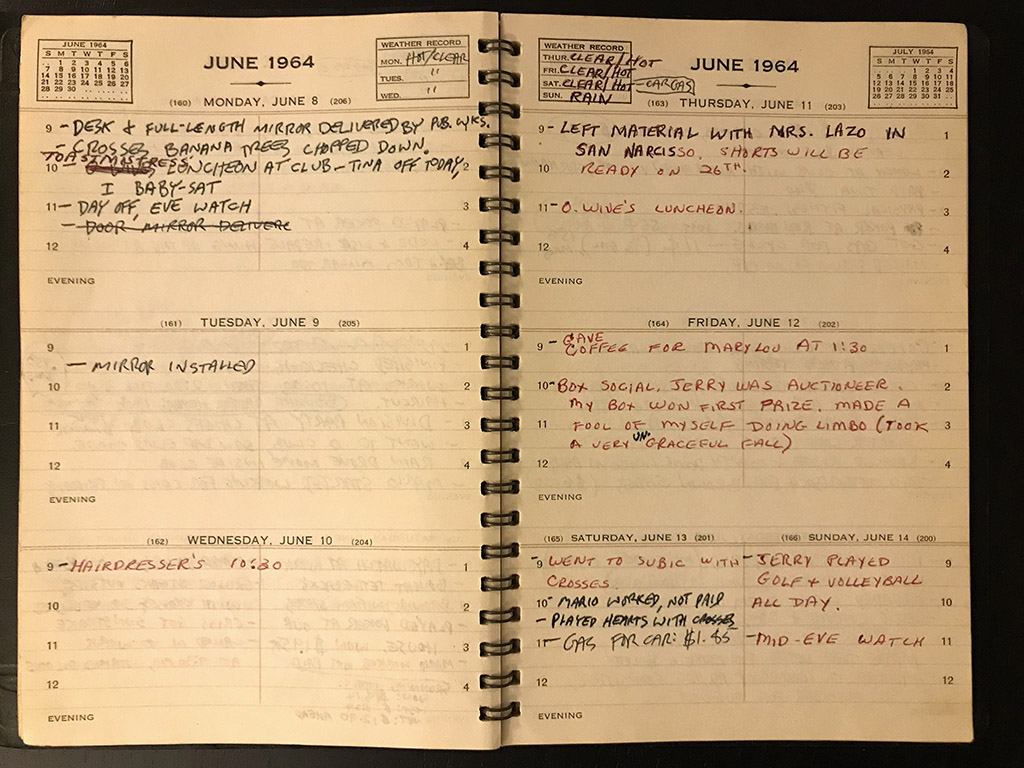 JUNE 1964
S M T W T F S
1 2 3 4 5 6
7 8 9 10 11 12 13
14 15 16 17 18 19 20
21 22 23 24 25 26 27
28 29 30
JUNE 1964
WEATHER RECORD
MON. HOT/CLEAR
TUES. "
WED. "
(160) MONDAY, JUNE 8 (206)
9 - DESK & FULL-LENGTH MIRROR DELIVERED BY P.B. WKS.
- CROSSES BANANA TREES CHOPPED DOWN.
TOASTMISTRESS'
10 LUNCHEON AT CLUB - TINA OFF TODAY, 2
I BABY-SAT
11 - DAY OFF, EVE WATCH 3
- DOOR MIRROR DELIVERE
12 4
EVENING
(161) TUESDAY, JUNE 9 (205)
9 1
- MIRROR INSTALLED
10 2
11 3
12 4
EVENING
(162) WEDNESDAY, JUNE 10 (204)
9 - HAIRDRESSER'S 10:30 1
10 2
11 3
12 4
EVENING
WEATHER RECORD
THUR. CLEAR/HOT
FRI. CLEAR/HOT
SAT. CLEAR/HOT - CAR GAS
SUN. RAIN
JUNE 1964
JULY 1964
S M T W T F S
1 2 3 4
5 6 7 8 9 10 11
12 13 14 15 16 17 18
19 20 21 22 23 24 25
26 27 28 29 30 31
(163) THURSDAY, JUNE 11 (203)
9 - LEFT MATERIAL WITH MRS. LAZO IN 1
SAN NARCISSO. SHORTS WILL BE
10 READY ON 26TH. 2
11 - O. WIVE'S LUNCHEON. 3
12 4
EVENING
(164) FRIDAY, JUNE 12 (202)
GAVE
9 - COFFEE FOR MARYLOU AT 1:30 1
10 - BOX SOCIAL. JERRY WAS AUCTIONEER. 2
MY BOX WON FIRST PRIZE. MADE A
11 FOOL OF MYSELF DOING LIMBO (TOOK 3
A VERY UN-GRACEFUL FALL)
12 4
EVENING
(165) SATURDAY, JUNE 13 (201)
9 - WENT TO SUBIC WITH
CROSSES
10 - MARIO WORKED, NOT PAID
- PLAYED HEARTS WITH CROSSES
11 - GAS FOR CAR: $1.85
12
EVENING
(166) SUNDAY, JUNE 14 (200)
- JERRY PLAYED 9
GOLF & VOLLEYBALL
ALL DAY. 10
- MID-EVE WATCH 11
12